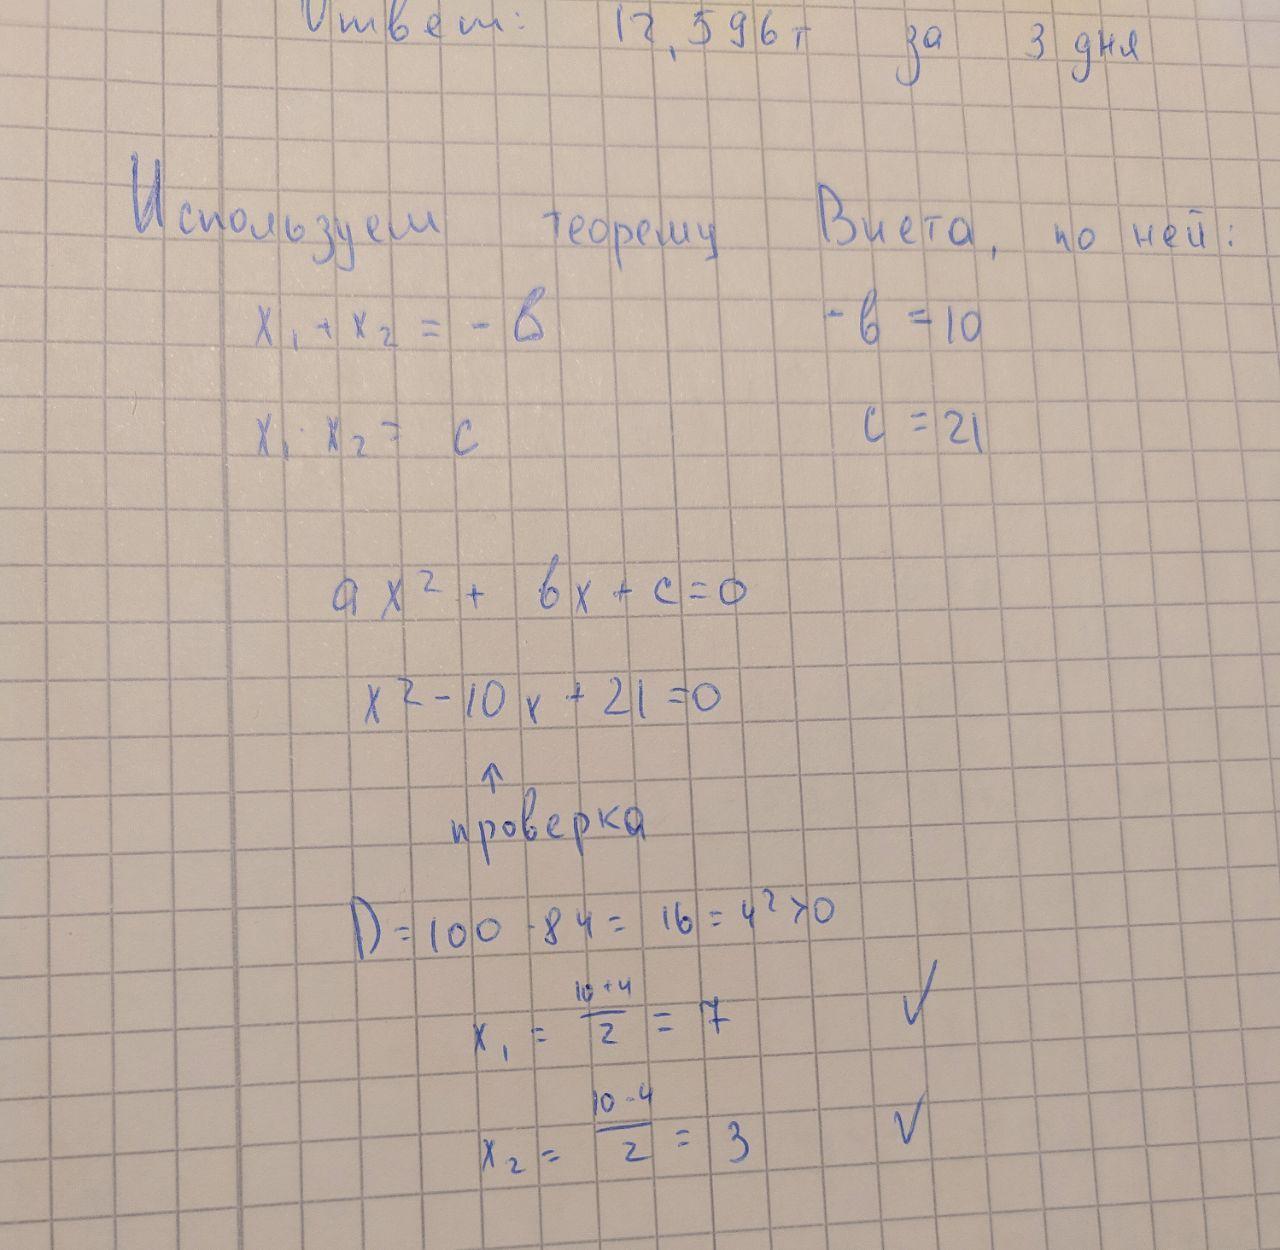 Ответ: 12,596т за 3 дня
Используем теорему Виета, по ней:
x₁ + x₂ = - b -b = 10
x₁ · x₂ = c c = 21
ax² + bx + c = 0
x² - 10x + 21 = 0
↑
проверка
D = 100 - 84 = 16 = 4² > 0
x₁ = (10 + 4)/2 = 7 ✓
x₂ = (10 - 4)/2 = 3 ✓